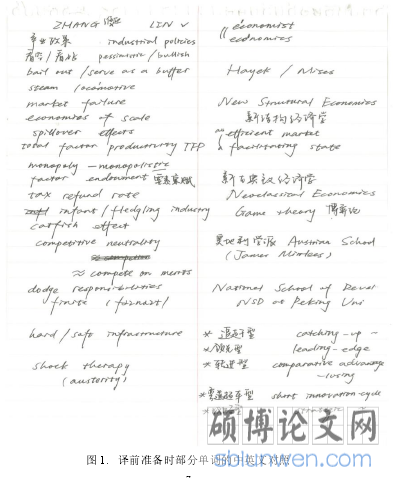 ZHANG LIN ✓
产业政策 industrial policies
看空/看好 pessimistic / bullish
bail out / serve as a buffer
steam locomotive
market failure
economies of scale
spillover effects
total factor productivity TFP
monopoly – monopolists
factor endowment 要素禀赋
tax refund rate
infant / fledgling industry
catfish effect
competitive neutrality
≈ compete on merits
dodge responsibilities
finite
hard / soft infrastructure
shock therapy
(austerity)
economist
economics
Hayek / Mises
New Structural Economics
新结构经济学
an efficient market
a facilitating state
新古典主义经济学
Neoclassical Economics
Game theory 博弈论
奥地利学派 Austrian School
(James Mirrlees)
National School of Devel
NSD at Peking Uni
* 追赶型 catching-up ~
* 领先型 leading-edge
* 转进型 comparative advantage
-losing
* 弯道超车型 short innovation-cycle
硕博论文网
shblwen.com
图 1. 译前准备时部分单词的中英文对照
7